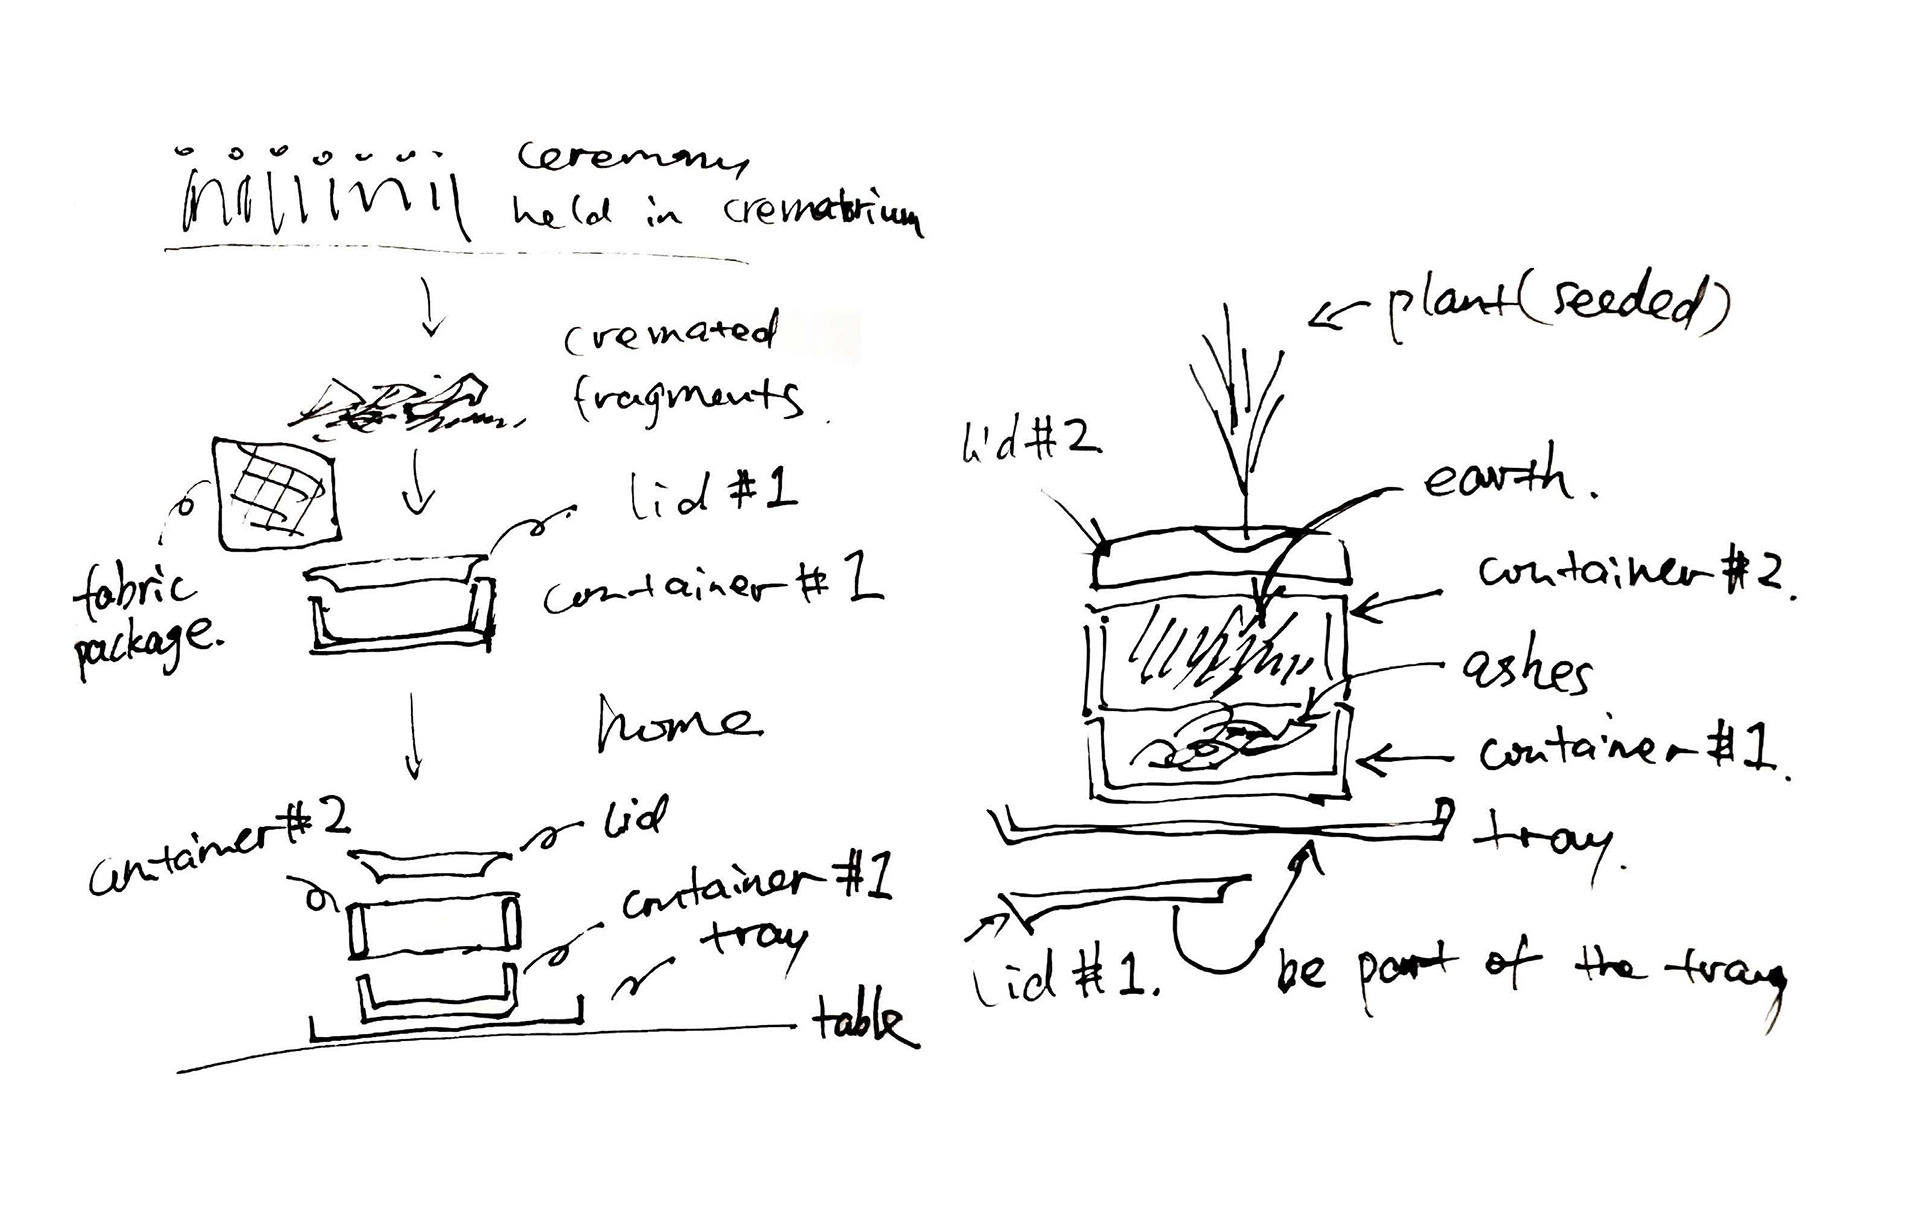 ceremony
held in crematrium
cremated
fragments.
lid #1
container #1
fabric
package.
home
container #2
lid
container #1
tray
table
plant (seeded)
lid #2
earth.
container #2.
ashes
container #1.
tray.
lid #1.
be part of the tray